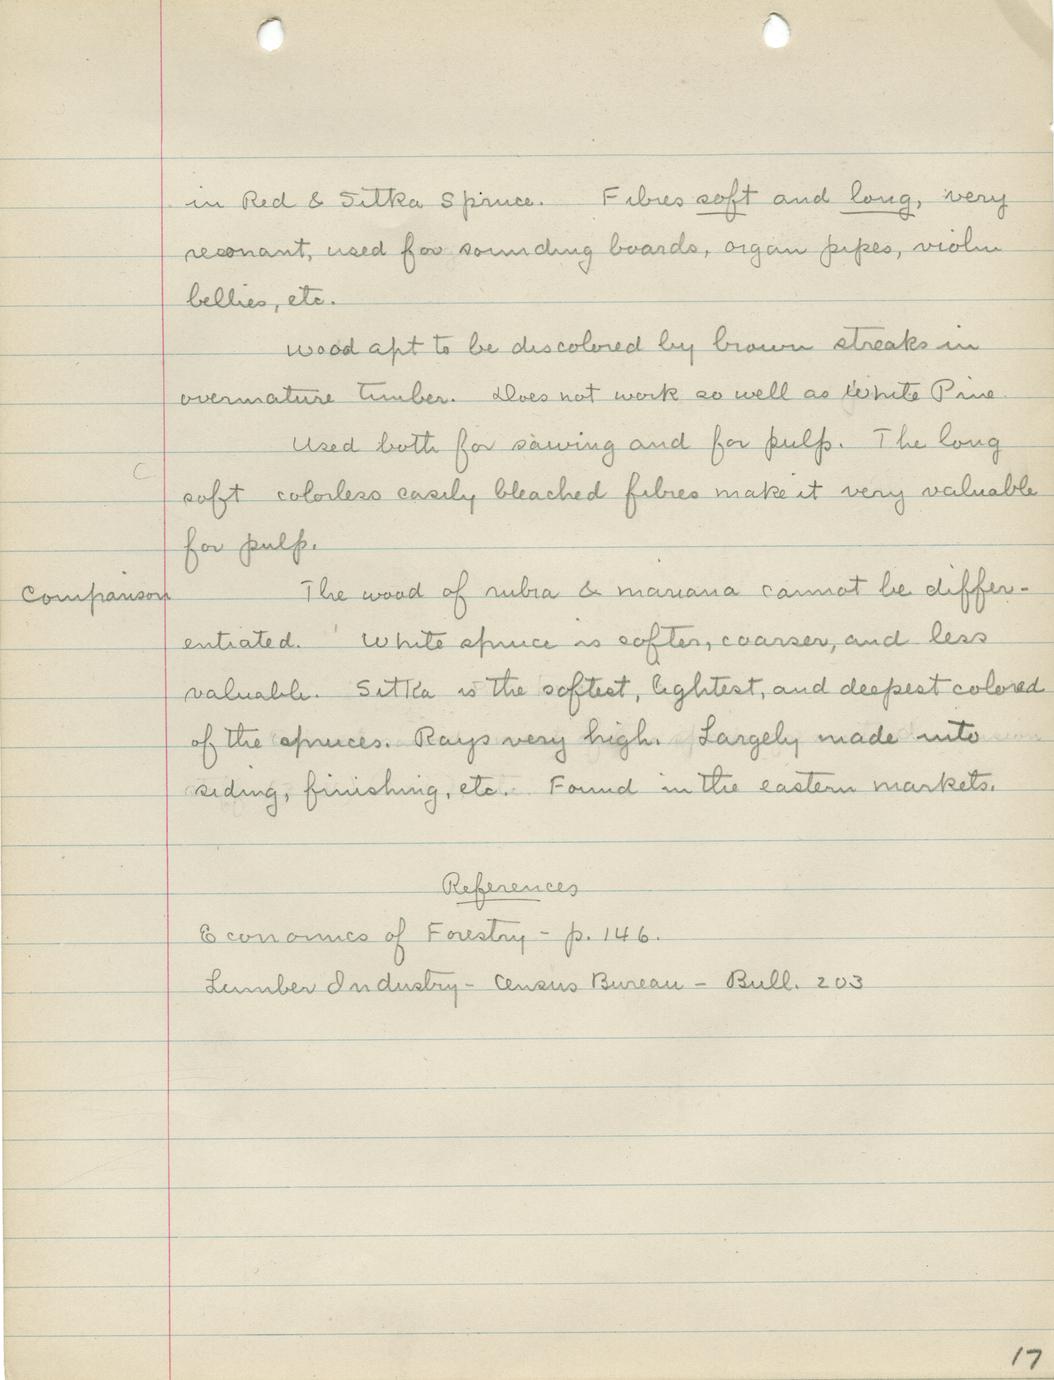 in Red & Sitka Spruce. Fibres soft and long, very
resonant, used for sounding boards, organ pipes, violin
bellies, etc.
Wood apt to be discolored by brown streaks in
overmature timber. Does not work so well as White Pine.
Used both for sawing and for pulp. The long
C
soft colorless easily bleached fibres make it very valuable
for pulp.
Comparison The wood of rubra & mariana cannot be differ-
entiated. White spruce is softer, coarser, and less
valuable. Sitka is the softest, lightest, and deepest colored
of the spruces. Rays very high. Largely made into
siding, finishing, etc. Found in the eastern markets.
References
Economics of Forestry - p. 146.
Lumber Industry - Census Bureau - Bull. 203
17